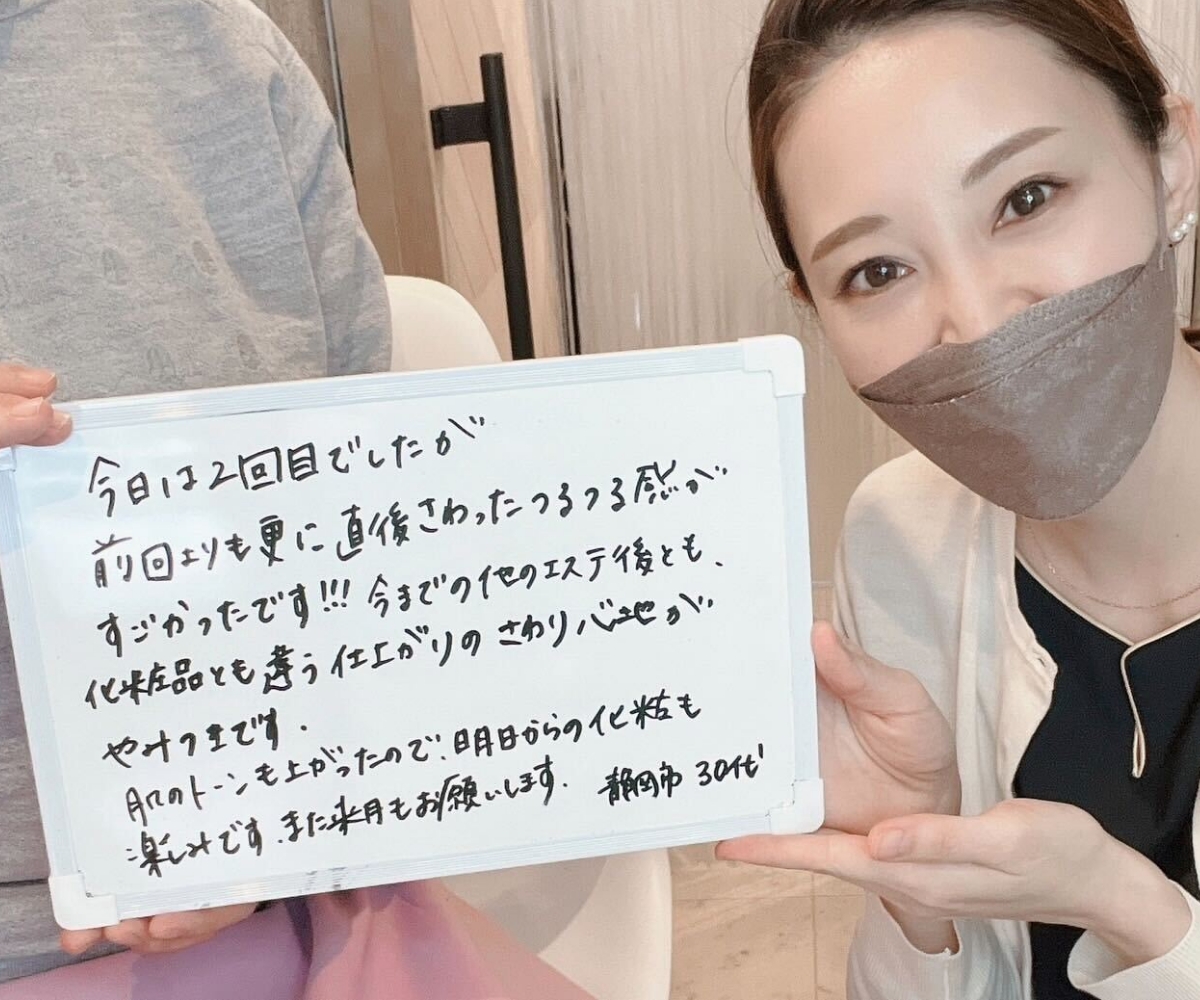 今日は2回目でしたが
前回よりも更に直後さわったつるつる感が
すごかったです!!! 今までの他のエステ後とも、
化粧品とも違う仕上がりのさわり心地が
やみつきです.
肌のトーンも上がったので、明日からの化粧も
楽しみです.また来月もお願いします. 静岡市 30代